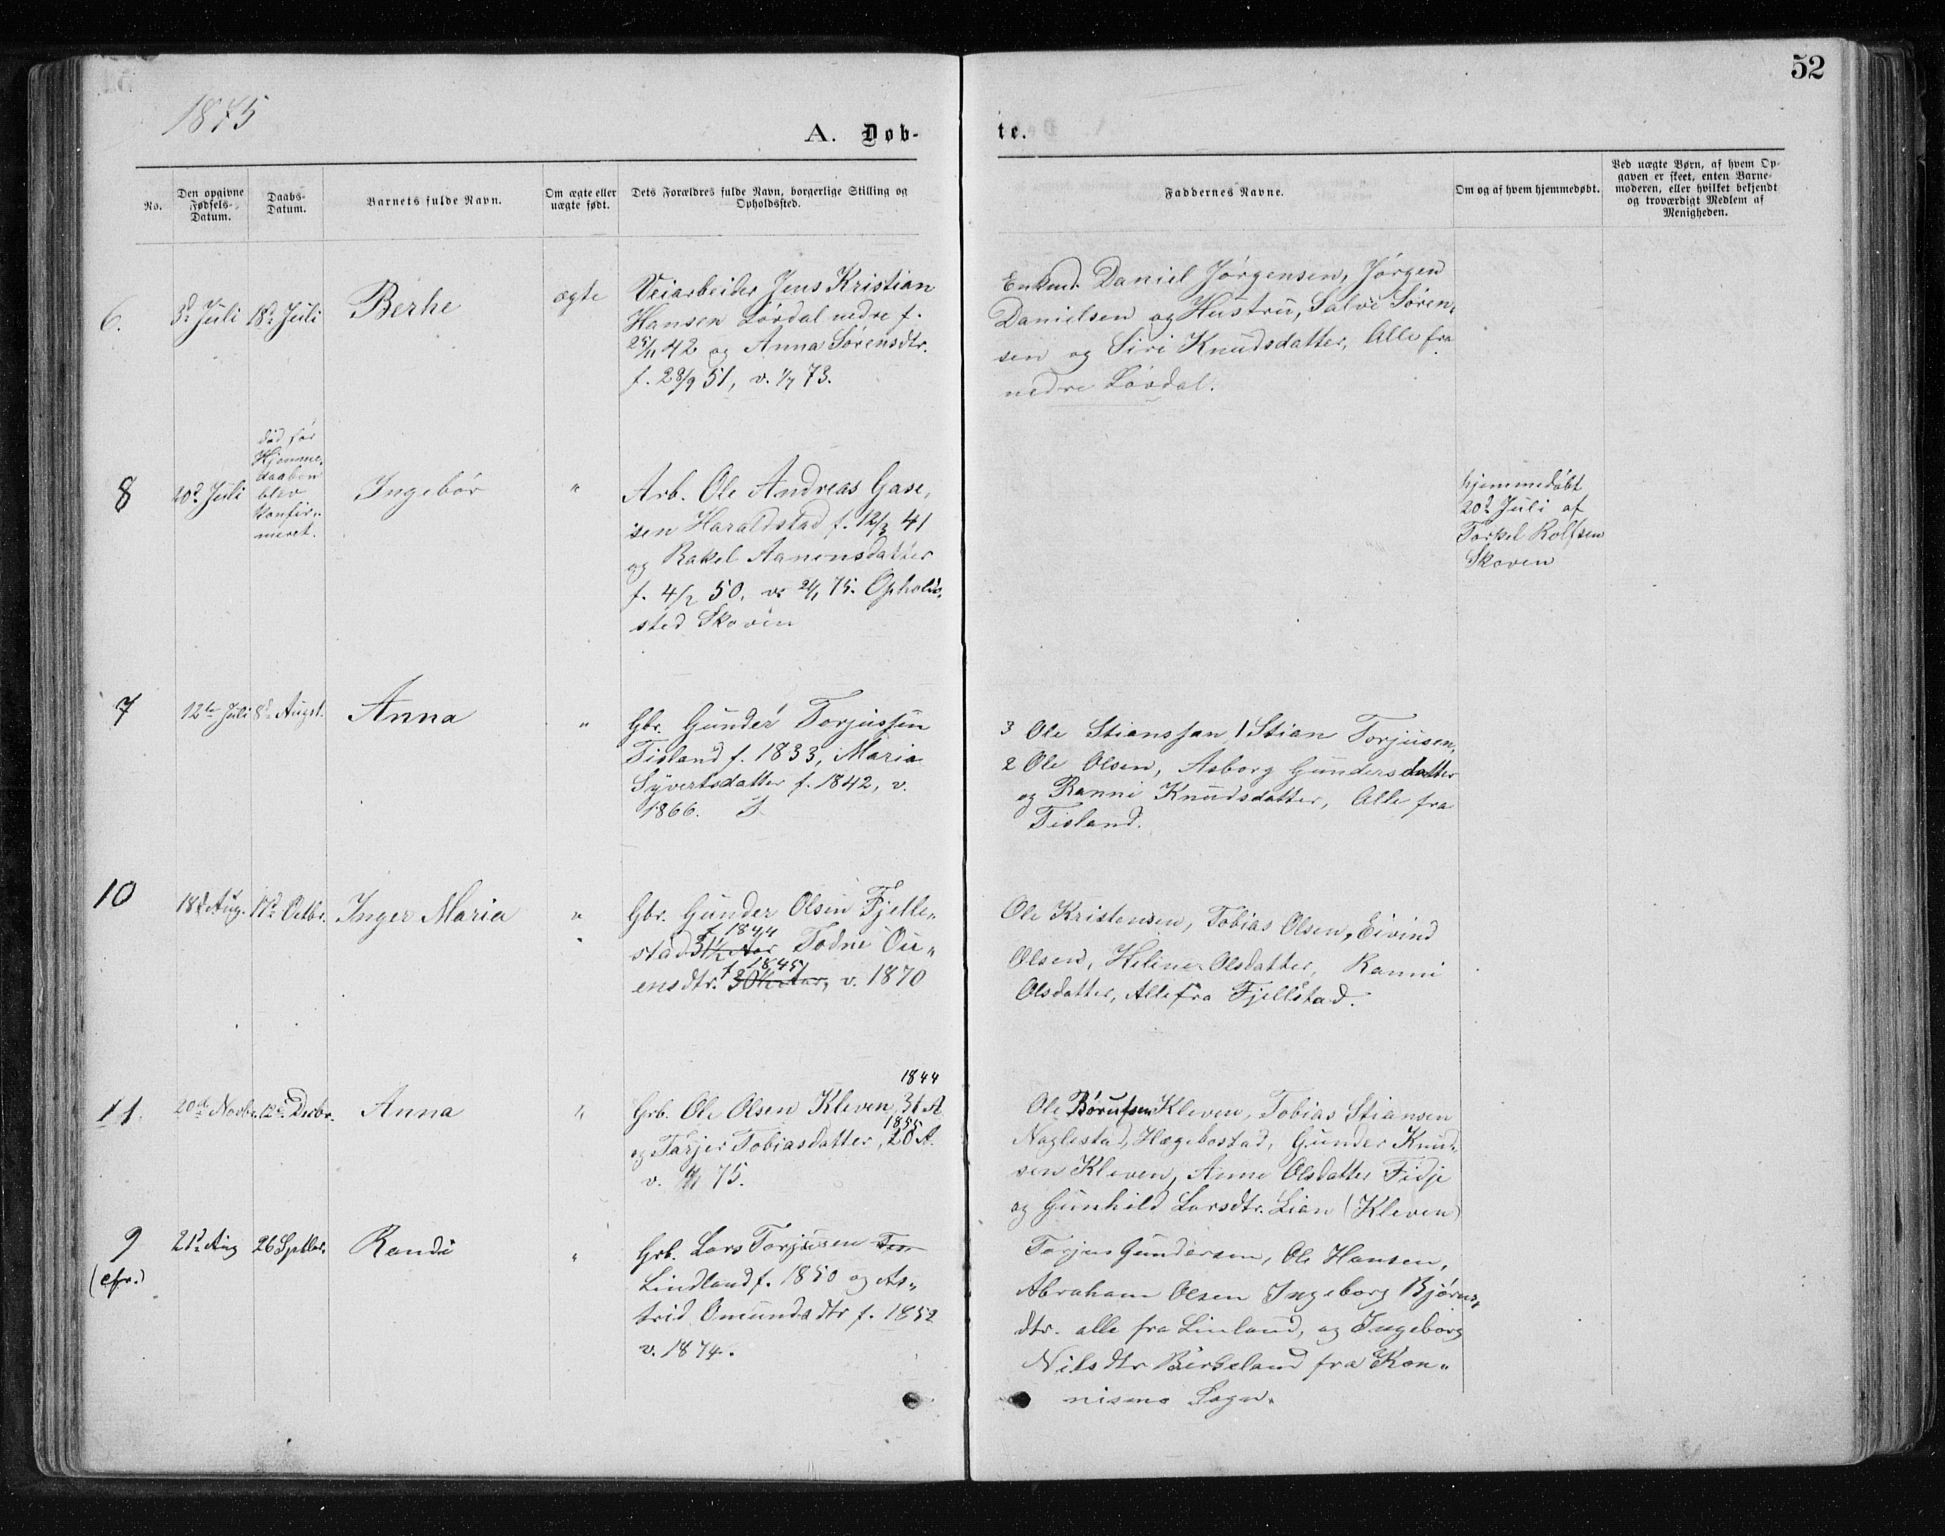 52
1875
A. Døb-
te.
No.
Den opgivne
Fødsels-
Datum.
Daabs-
Datum.
Barnets fulde Navn.
Om ægte eller
uægte født.
Dets Forældres fulde Navn, borgerlige Stilling og
Opholdssted.
Faddernes Navne.
Om og af hvem hjemmedøbt.
Ved uægte Børn, af hvem Op-
gaven er skeet, enten Barne-
moderen, eller hvilket bekjendt
og troværdigt Medlem af
Menigheden.
6.
3d Juli
18d Juli
Berhe
ægte
Veiarbeider Jens Kristian
Hansen Lövdal nedre f.
25/11 42 og Anna Sörensdtr.
f. 28/9 51, v. 1/7 73.
Enkmd. Daniel Jörgensen, Jörgen
Danielsen og Hustru, Salve Sören-
sen og Siri Knudsdatter, Alle fra
nedre Lövdal.
8
20d Juli
død før
Hjemme-
daaben
blev
konfir-
meret.
Ingebör
"
Arb. Ole Andreas Gase-
sen Haraldstad f. 12/3 41
og Rakel Aanensdatter
f. 4/2 50, v. 2/1 75. Opholds-
sted Skoven
hjemmedöbt
20d Juli af
Torkel Rolfsen
Skoven
7
12te Juli
8d Augst.
Anna
"
Gbr. Gunder Torjussen
Tisland f. 1833, Maria
Syvertsdatter f. 1842, v.
1866.
3 Ole Stianssan, 1 Stian Torjusen,
2 Ole Olsen, Asborg Gundersdatter
og Ranni Knudsdatter, Alle fra
Tisland.
10
18d Aug.
17d Octbr.
Inger Maria
"
Gbr. Gunder Olsen Fjelle-
f. 1844
stad 31½ Aar Todne Ou-
f. 1845
ensdtr. 30½ Aar, v. 1870
Ole Kristensen, Tobias Olsen, Eivind
Olsen, Helene Olsdatter, Ranni
Olsdatter, Alle fra Fjellstad.
11.
20de Novbr.
12te Decbr.
Anna
"
1844
Grb. Ole Olsen Kleven, 31 A
1855
og Tarjer Tobiasdatter, 20 A.
v. 75.
Ole Börufsen Kleven, Tobias Stiansen
Naglestad, Hægebostad, Gunder Knud-
sen Kleven, Anne Olsdatter Fidje
og Gunhild Larsdtr. Lien (Kleven)
9
(cfr.)
21d Aug
26 Sptbr.
Randi
"
Grb. Lars Torjusen
Lindland f. 1850 og As-
trid Omundsdtr f. 1852
v. 1874.
Torjus Gundersen, Ole Hansen,
Abraham Olsen Ingeborg Bjørns-
dtr. alle fra Linland, og Ingeborg
Nilsdtr Birkeland fra Kon-
nismo Sogn.